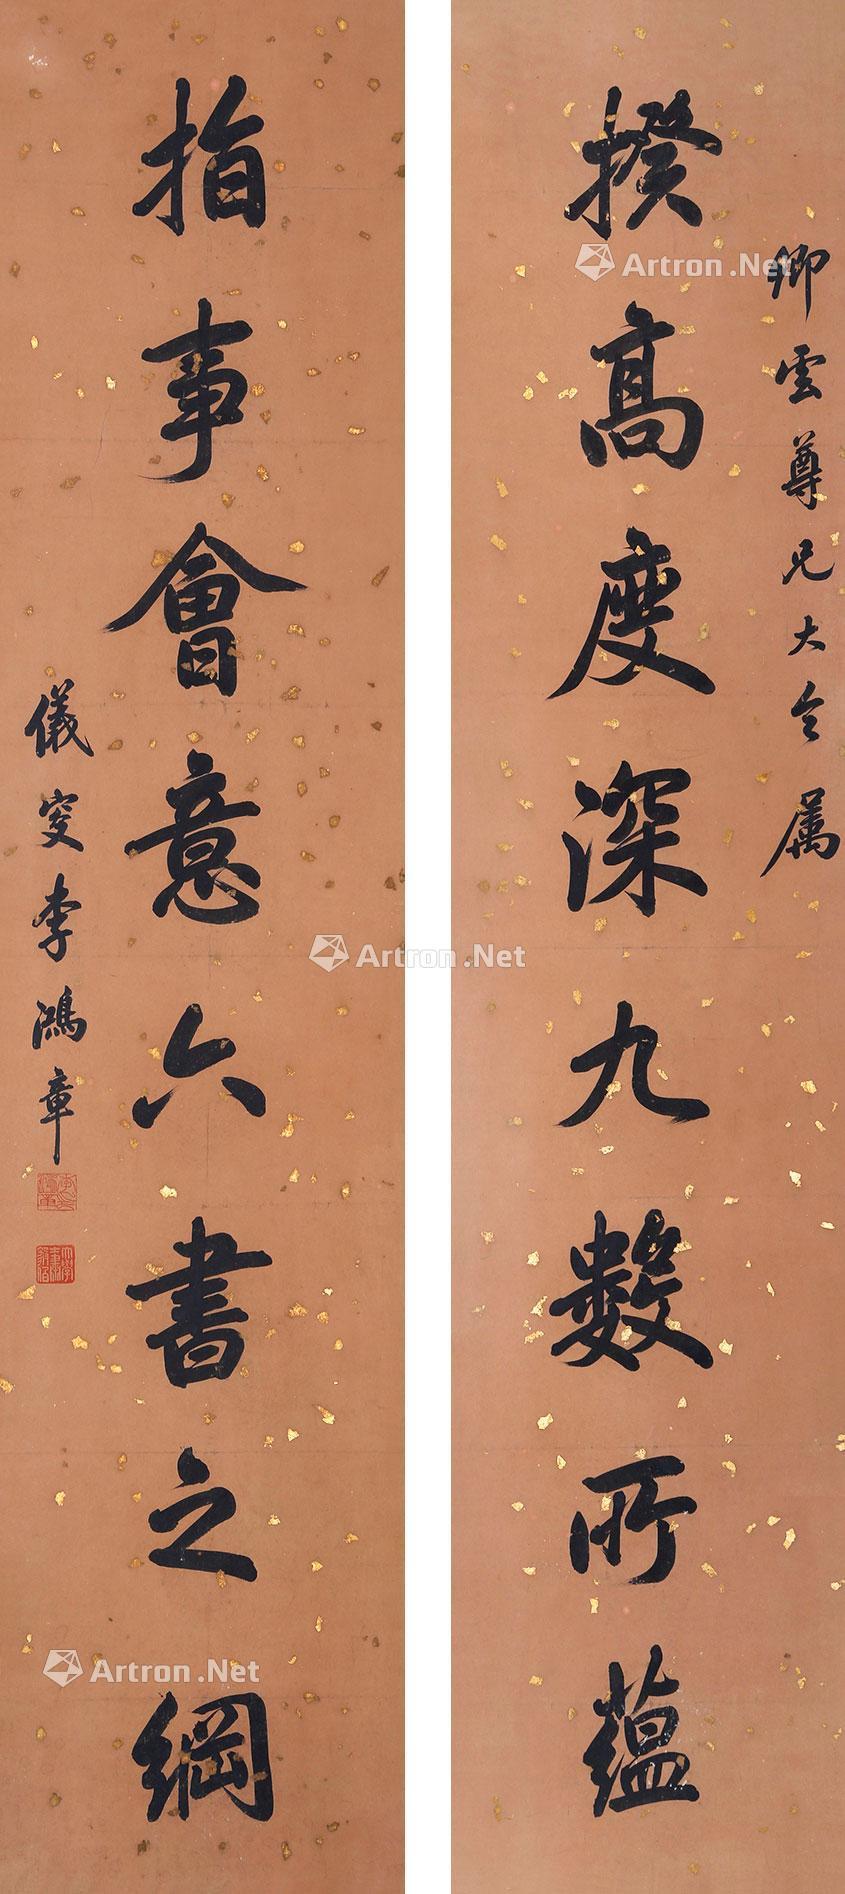 卿雲尊兄大令属
揆高度深九數所蘊
指事會意六書之綱
儀叟李鴻章
Artron.Net
Artron.Net
Artron.Net